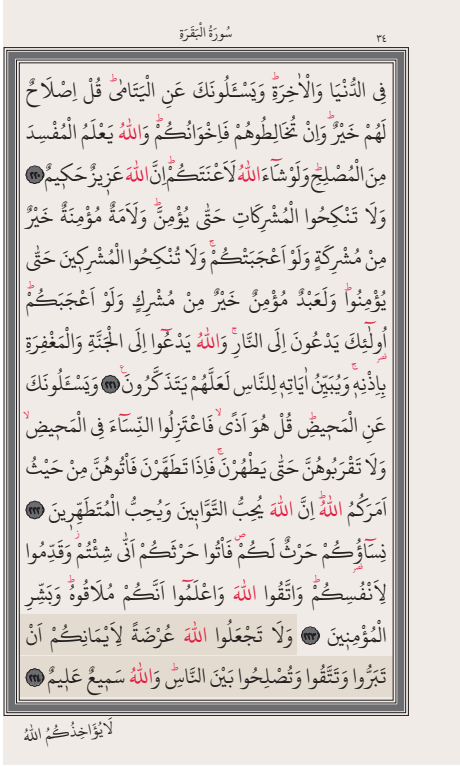 سُورَةُ الْبَقَرَةِ
٣٤
فِى الدُّنْيَا وَالْاٰخِرَةِۜ وَيَسْـَٔلُونَكَ عَنِ الْيَتَامٰىۜ قُلْ اِصْلَاحٌ
لَهُمْ خَيْرٌۜ وَاِنْ تُخَالِطُوهُمْ فَاِخْوَانُكُمْۜ وَاللّٰهُ يَعْلَمُ الْمُفْسِدَ
مِنَ الْمُصْلِحِۜ وَلَوْ شَٓاءَ اللّٰهُ لَاَعْنَتَكُمْۜ اِنَّ اللّٰهَ عَزٖيزٌ حَكٖيمٌ ﴿٢٢٠﴾
وَلَا تَنْكِحُوا الْمُشْرِكَاتِ حَتّٰى يُؤْمِنَّۜ وَلَاَمَةٌ مُؤْمِنَةٌ خَيْرٌ
مِنْ مُشْرِكَةٍ وَلَوْ اَعْجَبَتْكُمْۚ وَلَا تُنْكِحُوا الْمُشْرِكٖينَ حَتّٰى
يُؤْمِنُواۜ وَلَعَبْدٌ مُؤْمِنٌ خَيْرٌ مِنْ مُشْرِكٍ وَلَوْ اَعْجَبَكُمْۜ
اُو۬لٰٓئِكَ يَدْعُونَ اِلَى النَّارِۚ وَاللّٰهُ يَدْعُٓوا اِلَى الْجَنَّةِ وَالْمَغْفِرَةِ
بِاِذْنِهٖۚ وَيُبَيِّنُ اٰيَاتِهٖ لِلنَّاسِ لَعَلَّهُمْ يَتَذَكَّرُونَ۟ ﴿٢٢١﴾ وَيَسْـَٔلُونَكَ
عَنِ الْمَحٖيضِۜ قُلْ هُوَ اَذًىۙ فَاعْتَزِلُوا النِّسَٓاءَ فِى الْمَحٖيضِۙ
وَلَا تَقْرَبُوهُنَّ حَتّٰى يَطْهُرْنَۚ فَاِذَا تَطَهَّرْنَ فَأْتُوهُنَّ مِنْ حَيْثُ
اَمَرَكُمُ اللّٰهُۜ اِنَّ اللّٰهَ يُحِبُّ التَّوَّابٖينَ وَيُحِبُّ الْمُتَطَهِّرٖينَ ﴿٢٢٢﴾
نِسَٓاؤُ۬كُمْ حَرْثٌ لَكُمْۖ فَأْتُوا حَرْثَكُمْ اَنّٰى شِئْتُمْۘ وَقَدِّمُوا
لِاَنْفُسِكُمْۜ وَاتَّقُوا اللّٰهَ وَاعْلَمُٓوا اَنَّكُمْ مُلَاقُوهُۜ وَبَشِّرِ
الْمُؤْمِنٖينَ ﴿٢٢٣﴾ وَلَا تَجْعَلُوا اللّٰهَ عُرْضَةً لِاَيْمَانِكُمْ اَنْ
تَبَرُّوا وَتَتَّقُوا وَتُصْلِحُوا بَيْنَ النَّاسِۜ وَاللّٰهُ سَمٖيعٌ عَلٖيمٌ ﴿٢٢٤﴾
لَا يُؤَاخِذُكُمُ اللّٰهُ